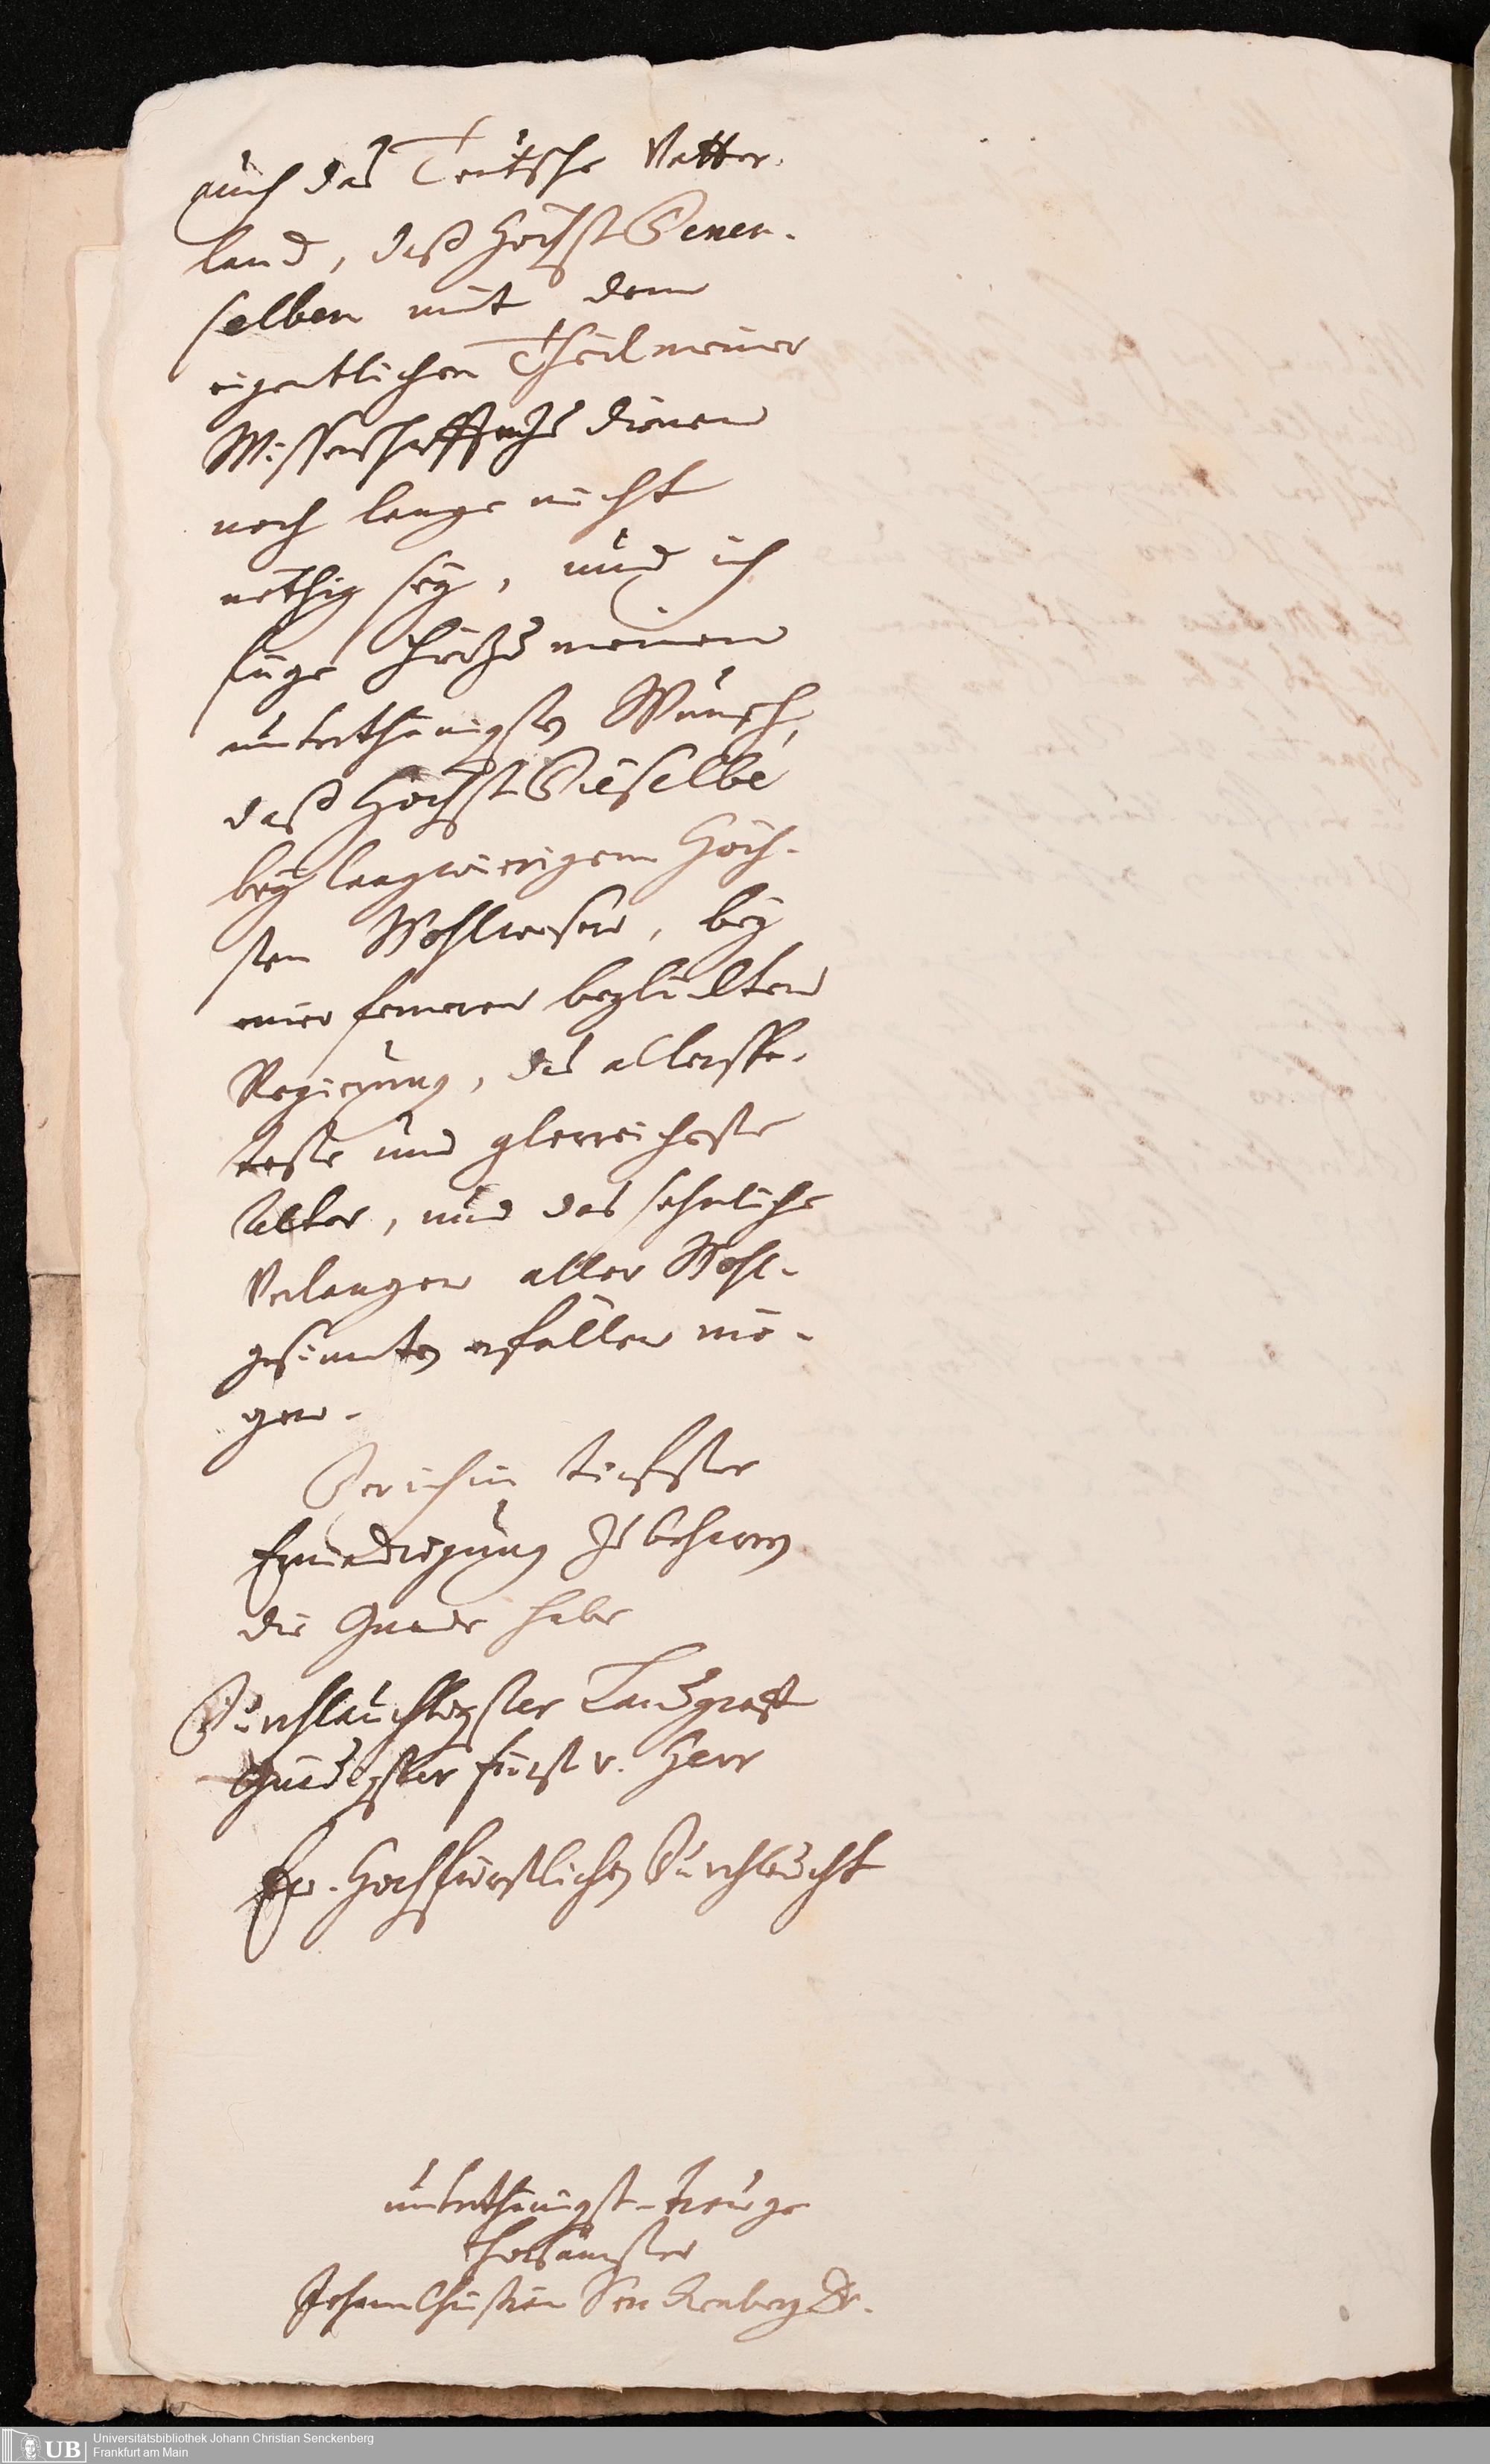 auch das Teütsche Vatter-
land, daß HöchstDenen-
selben mit dem
eigentlichen Theil meiner
Wissenschafft zu dienen
noch lange nicht
nöthig seÿ, und ich
füge hierzu meinen
unterthänigsten Wunsch,
daß Höchst Dieselbe
beÿ langwierigem Höch-
sten Wohlwesen, beÿ
einer ferneren beglückten
Regierung, das allerspä-
teste und glorreichste
Alter, und das sehnliche
Verlangen aller Wohl-
gesinnten erfüllen mö-
gen.
Der ich in tiefster
Erniedrigung zu beharren
die Gnade habe
Durchlauchtigster Landgraff
Gnädigster Fürst v. Herr
Ew. Hochfürstlichen Durchlaucht
unterthänigst-treüge
horsamster
Johann Christian Senckenberg Dr.
Universitätsbibliothek Johann Christian Senckenberg
Frankfurt am Main
UB